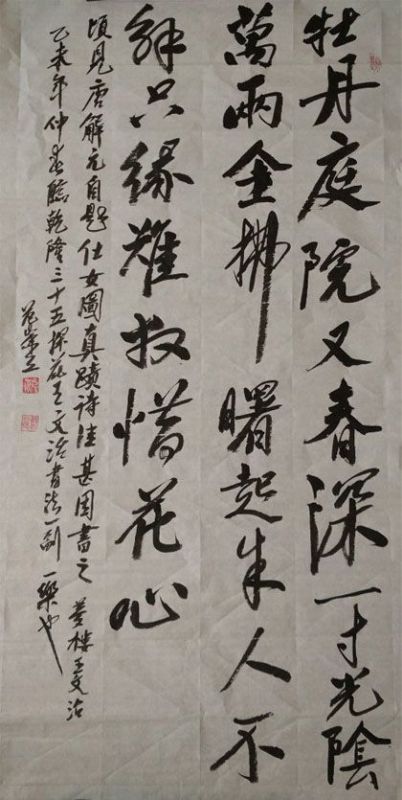 牡丹庭院又春深一寸光陰
萬兩金拂曙起來人不
解只緣難放惜花心
頃見唐解元自題仕女圖真蹟詩佳甚因書之 夢樓王文治
乙未年仲春臨乾隆三十五探花王文治書法一副 一樂也